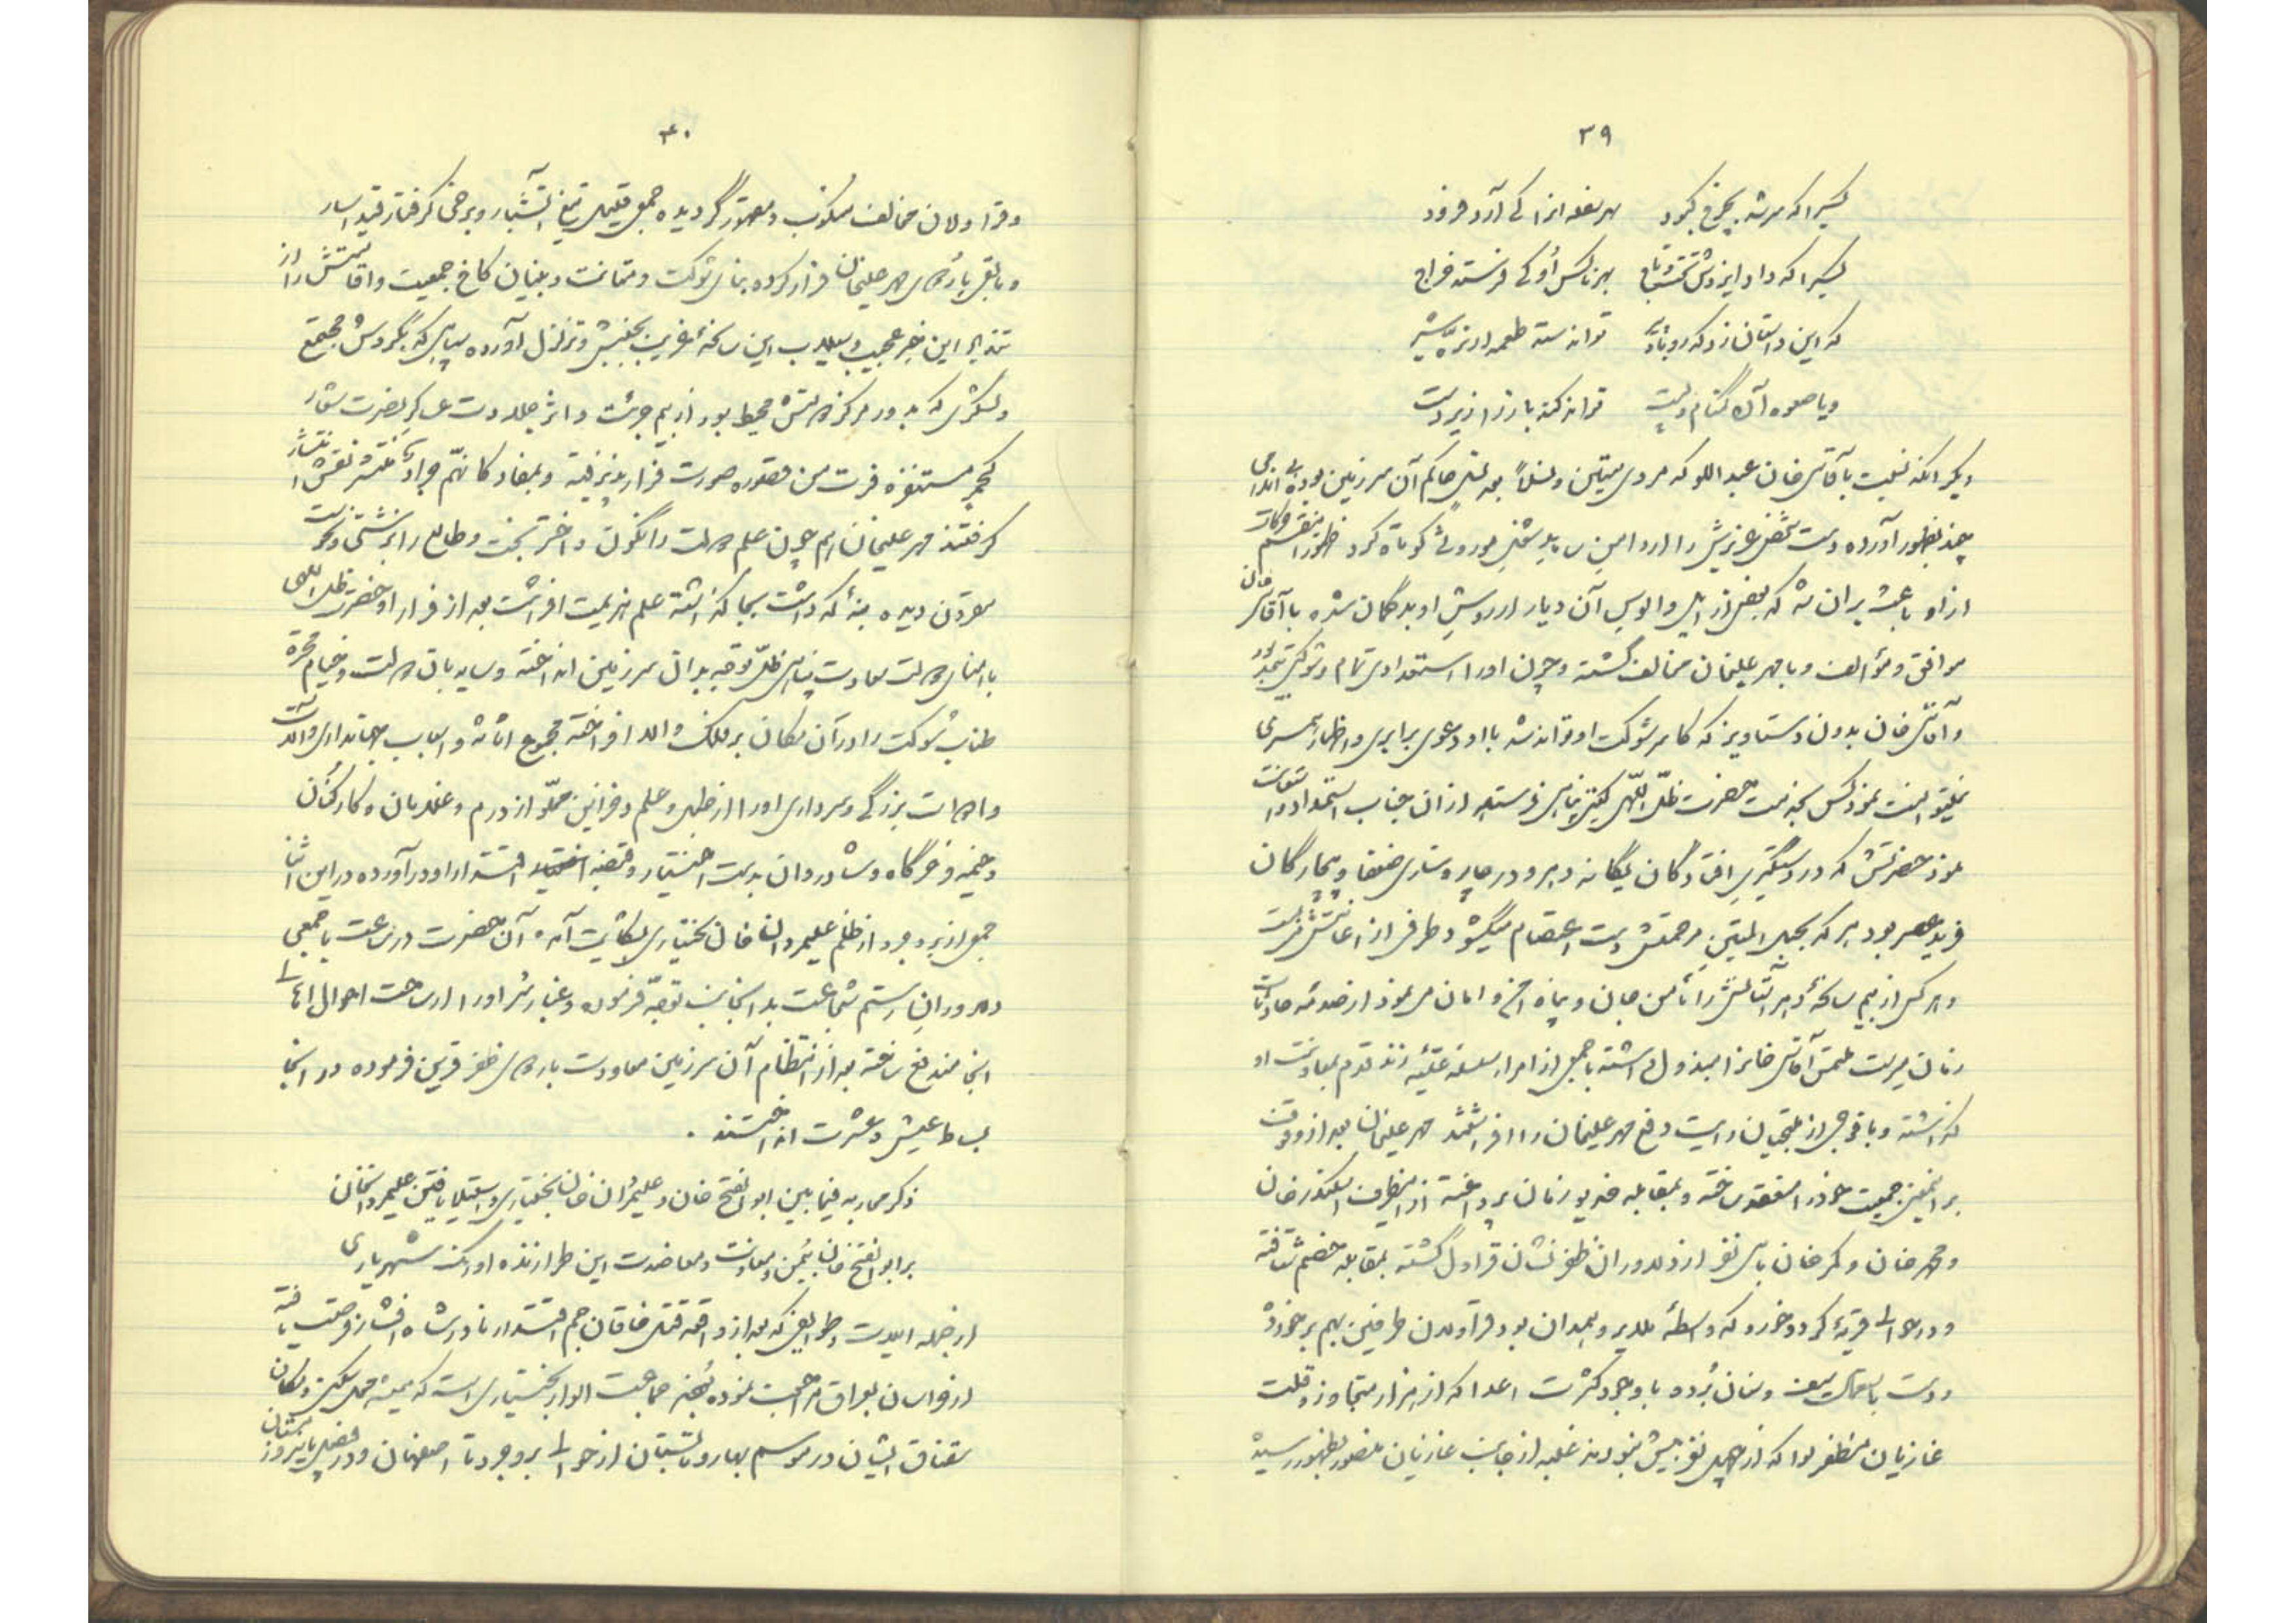 ۳۹
کسیرا که سر شد بچرخ کبود    بهر سفله او را کی آرد فرود
کسیرا که داد ایزدش تخت و تاج    بهر ناکس او کی فرستد خراج
که این داستان زد که روباه پیر    تواند ستد طعمه از نره شیر
و یا صعوه آن گمنام و پست    تواند کند باز را زیردست
دیگر آنکه نسبت بآقاسی خان عبدالملو که مردی متین و نسلاً بعد نسل حاکم آن سرزمین بوده بی اندامی
چند بظهور آورده دست تخفیف عزیزش را از دامن ریاست موروثی کوتاه کرد ظهور این قسم حرکات
از او باعث بر آن شد که بعضی از ایل و الوس آن دیار از روش او بدگمان شده با آقاسی خان
موافق و مؤالف و با مهر علیخان مخالف گشته و چون او را استعدادی تمام و شوکتی
و آقاسی خان بدون دستاویز که کاسر شوکت او تواند شد با او دعوی برابری و اظهار همسری
نمیتوانست نمود کس بخدمت حضرت ظل اللهی گیتی پناهی فرستاد از آن جناب استمداد و استعانت
نمود حضرتش که در دستگیری افتادگان یگانه دهر و در چاره سازی ضعفا و بیچارگان
فرید عصر بود هر که بحبل المتین مرحمتش دست اعتصام میگشود طرفی از اعانتش می بست
و هر کس از بیم سانحه دهر آستانش را مأمن جان و پناه امن و امان می نمود از صدمه حادثات
زمان میرست ملتمس آقاسی خان را مبذول داشته با جمعی از امرای سلسله علیه زند قدم بمعاونت او
گذاشته و با فوجی از ملتجیان رایت دفع مهر علیخان را افراشتند مهر علیخان بعد از وقوف
بر این معنی جمعیت خود را منعقد ساخته و بمقابله خدیو زمان پرداخته از این طرف اسکندر خان
و محمد خان و کرم خان با سی نفر از دلاوران ظفر نشان قراول گشته بمقابله خصم شتافته
و در حوالی قریه کردخورد که واسطه ملایر و همدان بود قراولان طرفین بهم برخورده
و دست باستعمال سیف و سنان برده با وجود کثرت اعدا که از هزار متجاوز و قلت
غازیان مظفر لوا که از چهل نفر بیش نبودند غلبه از جانب غازیان منصور بظهور رسید
۴۰
و قراولان مخالف منکوب و مقهور گردیده جمعی قتیل تیغ آتشبار و برخی گرفتار قید اسار
و مابقی باردوی مهر علیخان فرار کرده بنای شوکت و متانت و بنیان کاخ جمعیت و اقامتش را از
تندباد این خبر عجیب و سیلاب این سانحه غریب بجنبش و تزلزل آورده سپاهی که بگردش مجتمع
و لشکری که بدور مرکز دولتش محیط بود از بیم جرئت و اثر جلادت عساکر نصرت شعار
کحمر مستنفره فرت من قسوره صورت فرار پذیرفته و بمفاد کانهم جراد منتشر نقش انتشار
گرفتند مهر علیخان هم چون علم دولت را نگون و اختر بخت و طالع را بزشتی و نحوست
مقرون دیده بنه که داشت بجا گذاشته علم هزیمت افراشت بعد از فرار او حضرت ظل اللهی
با امنای دولت سعادت پناهی ظل توجه بدان سرزمین انداخته و سایه بان دولت و خیام مجره
طناب شوکت را در آن مکان بر فلک والا افراخته مجموع اثاثه و اسباب جهانداری و آلات
و ادوات بزرگی و سرداری او را از طبل و علم و خزاین مملو از درم و غلامان و کارکنان
و خیمه و خرگاه و شادروان بدست اختیار و قبضه اقتدار او درآورده در این اثنا
جمعی از بروجرد از ظلم علیمردان خان بختیاری بشکایت آمده آن حضرت در ساعت با جمعی
دلاوران رستم شجاعت بدان جانب توجه فرموده و غبار شر او را از ساحت احوال اهالی
آنجا مندفع ساخته بعد از انتظام آن سرزمین معاودت باردوی ظفر قرین فرموده در آنجا
بساط عیش و عشرت انداختند .
ذکر محاربه فیما بین ابوالفتح خان و علیمردان خان بختیاری و استیلا یافتن علیمردانخان
بر ابوالفتح خان بیمن معاونت و معاضدت این طرازنده اورنگ شهریاری
از جمله ایلات و طوایفی که بعد از واقعه قتل خاقان جم اقتدار نادرشاه افشار فرصت یافته
از خراسان بعراق مراجعت نموده بودند جماعت الوار بختیاری است که همیشه محل سکنی و مکان
قشلاق ایشان در موسم بهار و تابستان از حوالی بروجرد تا اصفهان و در فصل پاییز و زمستان